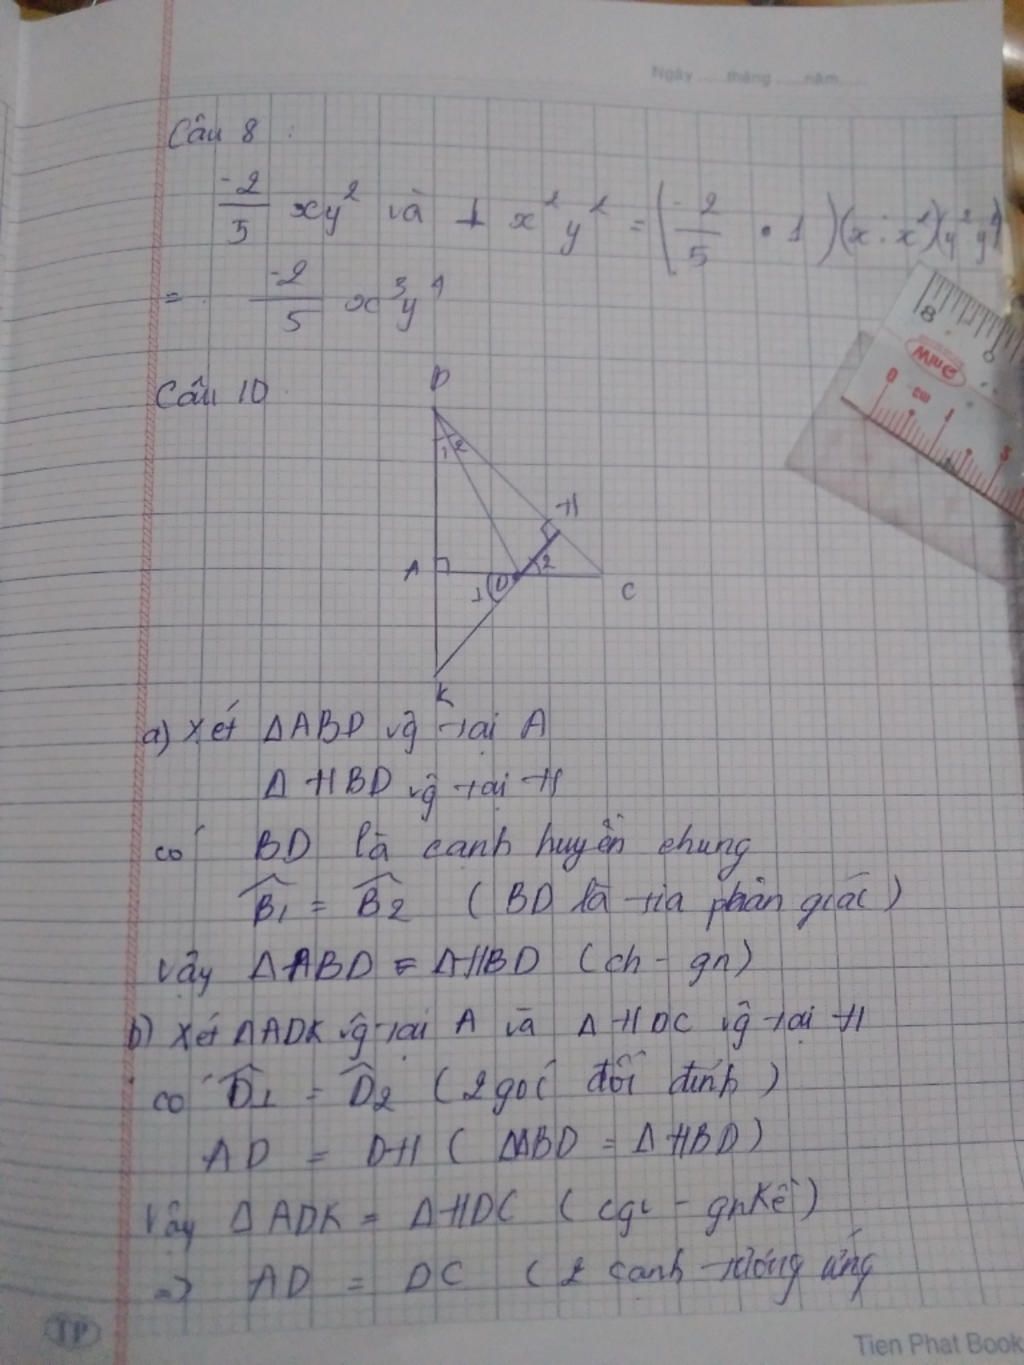 Ngày ......tháng ......năm......
Câu 8 :
-2/5 xy² và 1 x²y² = (-2/5 . 1)(x . x²)(y² y²)
= -2/5 x³y⁴
Câu 10
B
1 2
H
A
1 D 2
C
K
a) Xét ΔABD vg tại A
Δ HBD vg tại H
có BD là cạnh huyền chung
B̂1 = B̂2 ( BD là tia phân giác )
Vậy ΔABD = ΔHBD (ch - gn)
b) Xét ΔADK vg tại A và ΔHDC vg tại H
có D̂1 = D̂2 ( 2 góc đối đỉnh )
AD = DH ( ΔABD = ΔHBD )
Vậy ΔADK = ΔHDC ( cgv - gnkề )
=> AD = DC ( 2 cạnh tương ứng
8
WinQ
0 cm 1
TP
Tien Phat Book